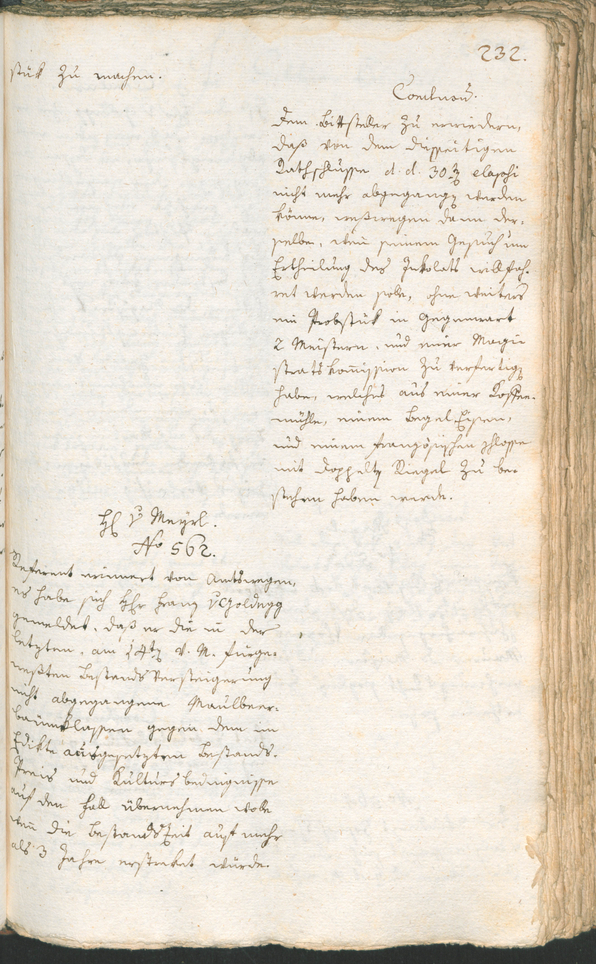 232.
stük zu machen.
Conclusum.
Dem Bittsteller zu erwiedern,
daß von dem disseitigen
Rathschlusse d. d. 30 elapsi
nicht mehr abgegangen werden
könne, weßwegen dann der-
selbe, wenn seinem Gesuch um
Ertheilung des Inkolats willfah-
ret werden solle, ohne weiters
ein Probstük in Gegenwart
2 Meistern, und einer Magi-
stratskommission zu verfertigen
habe, welches aus einer Koffee-
mühle, einem Begel Eisen,
und einem französischen Schlosse
mit doppelten Riegel zu be-
stehen haben werde.
H v Meyrl.
No 562.
Referent erinnert von Amtswegen,
es habe sich Hr Franz v Goldegg
gemeldet, daß er die in der
letzten, am 14ten d. M. fürge-
weßten Bestandsversteigerung
nicht abgegangene Maulbeer-
baumklassen gegen dem im
Edikte ausgesetzten Bestands-
Preis und Kultursbedingnisse
auf den Fall übernehmen wolle
wenn die Bestandszeit auf mehr
als 3 Jahre erstreket würde.